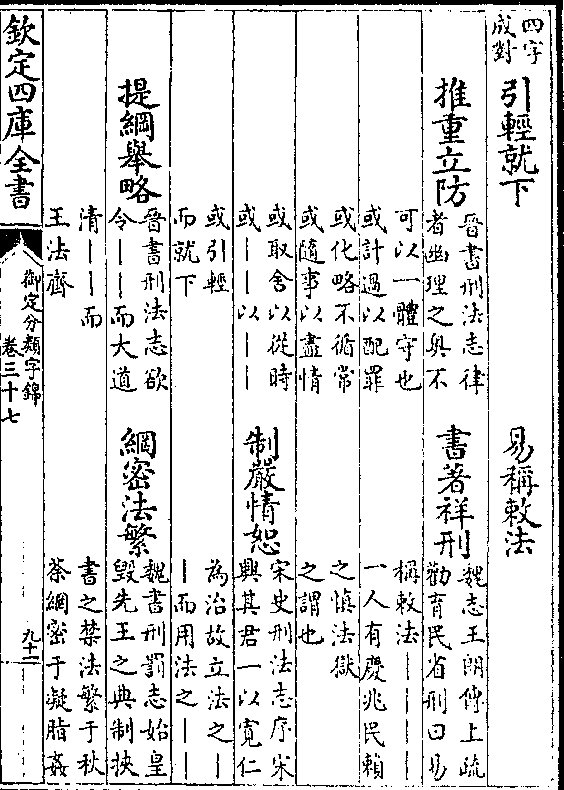 四字
成對
引輕就下
易稱敕法
推重立防
晉書刑法志律
者幽理之奧不
書著祥刑
魏志王朗傳上疏
勸育民省刑曰易
可以一體守也
或計過以配罪
稱敕法｜｜｜｜
一人有慶兆民賴
或化略不循常
或隨事以盡情
之慎法獄
之謂也
或取舍以從時
或｜｜以｜｜
制嚴情恕
宋史刑法志序宋
興其君一以寬仁
或引輕
而就下
為治故立法之｜
｜而用法之｜｜
提綱舉略
晉書刑法志欲
令｜｜而大道
綱密法繁
魏書刑罰志始皇
毀先王之典制挾
清｜｜而
王法齊
書之禁法繁于秋
荼綱密于凝脂姦
欽定四庫全書
御定分類字錦
卷三十七
九十一